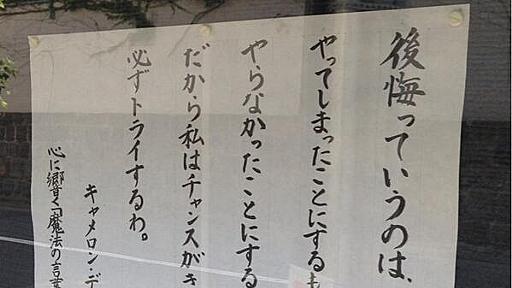 後悔っていうのは、
やってしまったことにする
やらなかったことにする
だから私はチャンスが
必ずトライするわ。
キャメロン・デ
心に響く「魔法の言葉